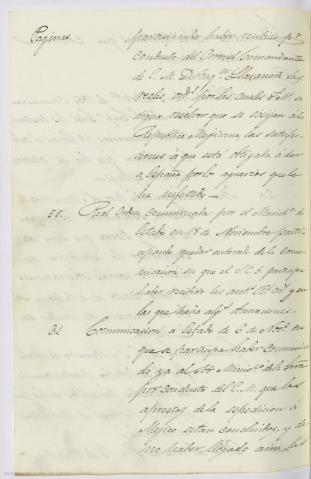 Paginas participando haber recibido pr.
conducto del Coronel Comandante
de E. M. D. Franco. Llavanera las
reales ords. por las cuales S. M. se
digna resolver que se exijan á la
Republica Mejicana las satisfac-
ciones á que está obligada á dar
á España por los agravios que le
ha inferido.
55. Real orden comunicada por el Minist.o de
Estado en 18 de Noviembre partici-
pando quedar enterada de la comu-
nicacion en que el S. C. G. participa
haber recibido las
las que hacia algs. observaciones.
31 Comunicacion á Estado de 6 de Nove. en
que se participa haber comunica-
do ya al Sor. Minist.o de la Guerra
por conducto del E. M. que los
aprestos de la espedicion á
Mejico estan concluidos, y de
no haber llegado aun las